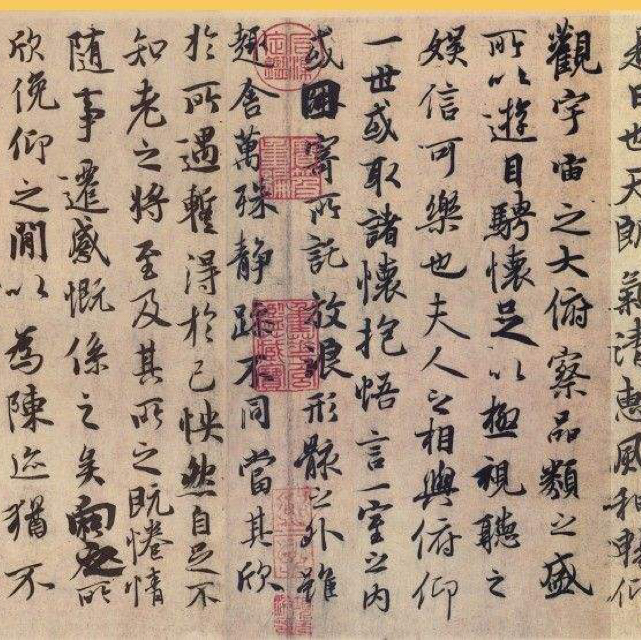 是日也天朗氣清惠風和暢仰
觀宇宙之大俯察品類之盛
所以遊目騁懷足以極視聽之
娛信可樂也夫人之相與俯仰
一世或取諸懷抱悟言一室之內
或因寄所託放浪形骸之外雖
趣舍萬殊靜躁不同當其欣
於所遇蹔得於己怏然自足不
知老之將至及其所之既惓情
随事遷感慨係之矣向之所
欣俛仰之閒以為陳迹猶不